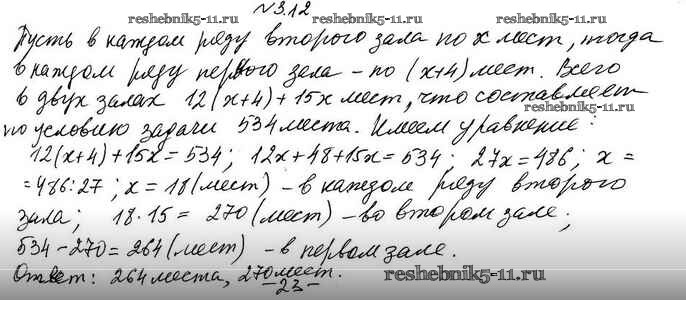 №3.12
reshebnik5-11.ru reshebnik5-11.ru
Пусть в каждом ряду второго зала по x мест, тогда
в каждом ряду первого зала – по (x+4) мест. Всего
в двух залах 12(x+4)+15x мест, что составляет
reshebnik5-11.ru
по условию задачи 534 места. Имеем уравнение:
12(x+4)+15x=534; 12x+48+15x=534; 27x=486; x=
=486:27; x=18(мест) – в каждом ряду второго
зала; 18·15= 270(мест) – во втором зале;
534-270=264(мест) – в первом зале.
Ответ: 264 места, 270 мест. reshebnik5-11.ru
-23-